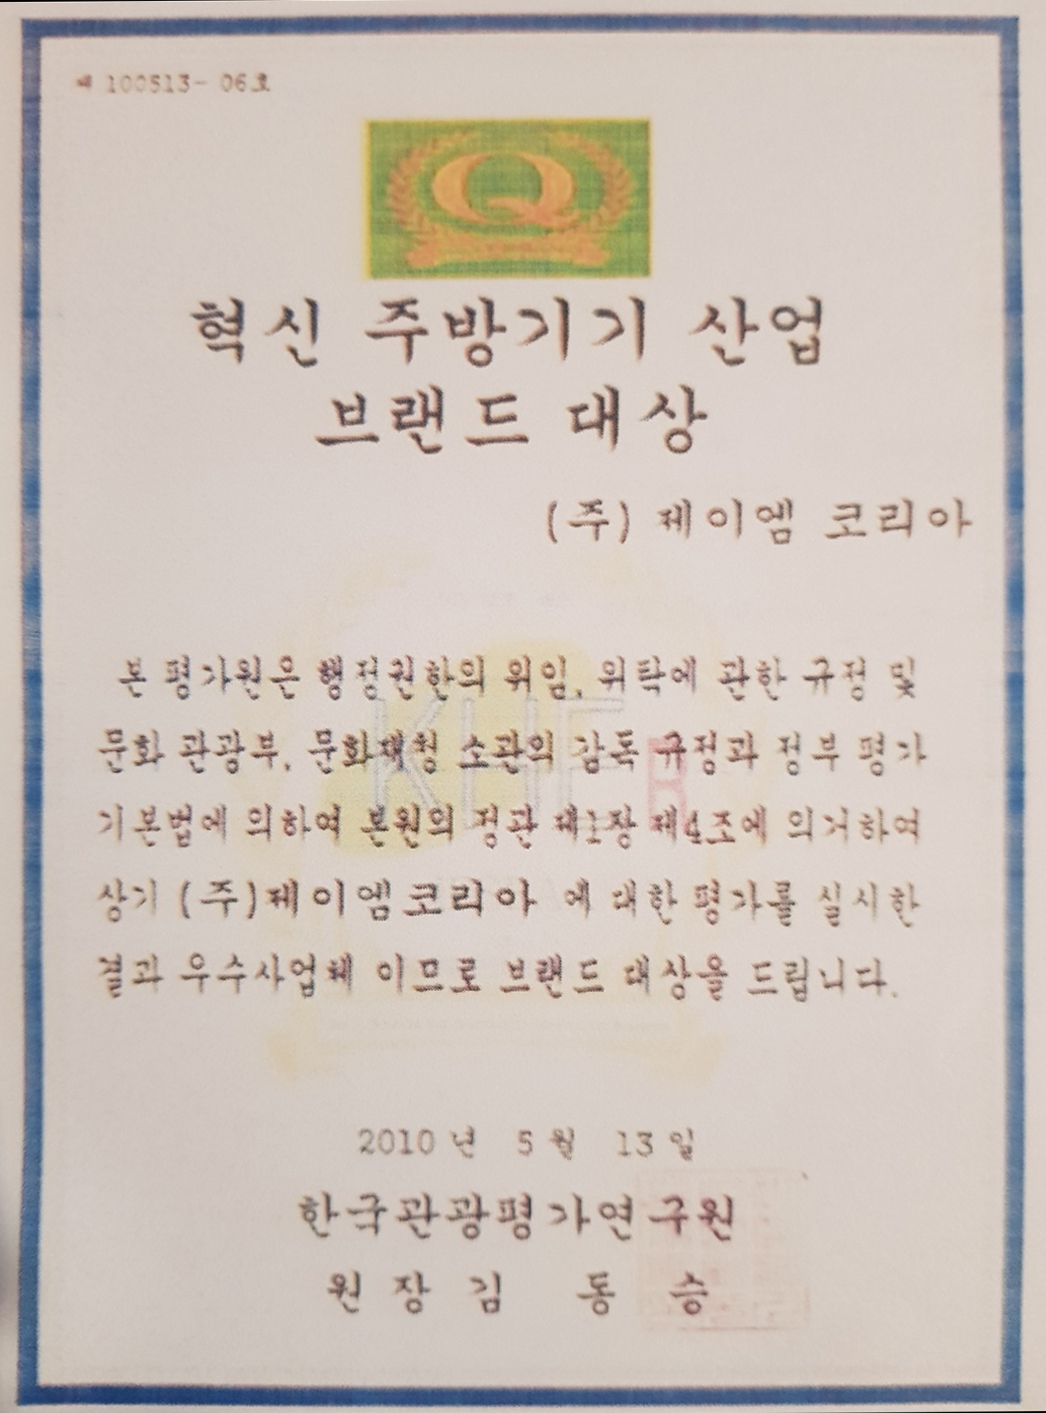 제 100513- 06호
Q
혁신 주방기기 산업
브랜드 대상
(주) 제이엠 코리아
본 평가원은 행정권한의 위임, 위탁에 관한 규정 및
문화 관광부, 문화재청 소관의 감독 규정과 정부 평가
기본법에 의하여 본원의 정관 제1장 제4조에 의거하여
상기 (주)제이엠코리아 에 대한 평가를 실시한
결과 우수사업체 이므로 브랜드 대상을 드립니다.
2010 년 5 월 13 일
한국관광평가연구원
원 장 김 동 승